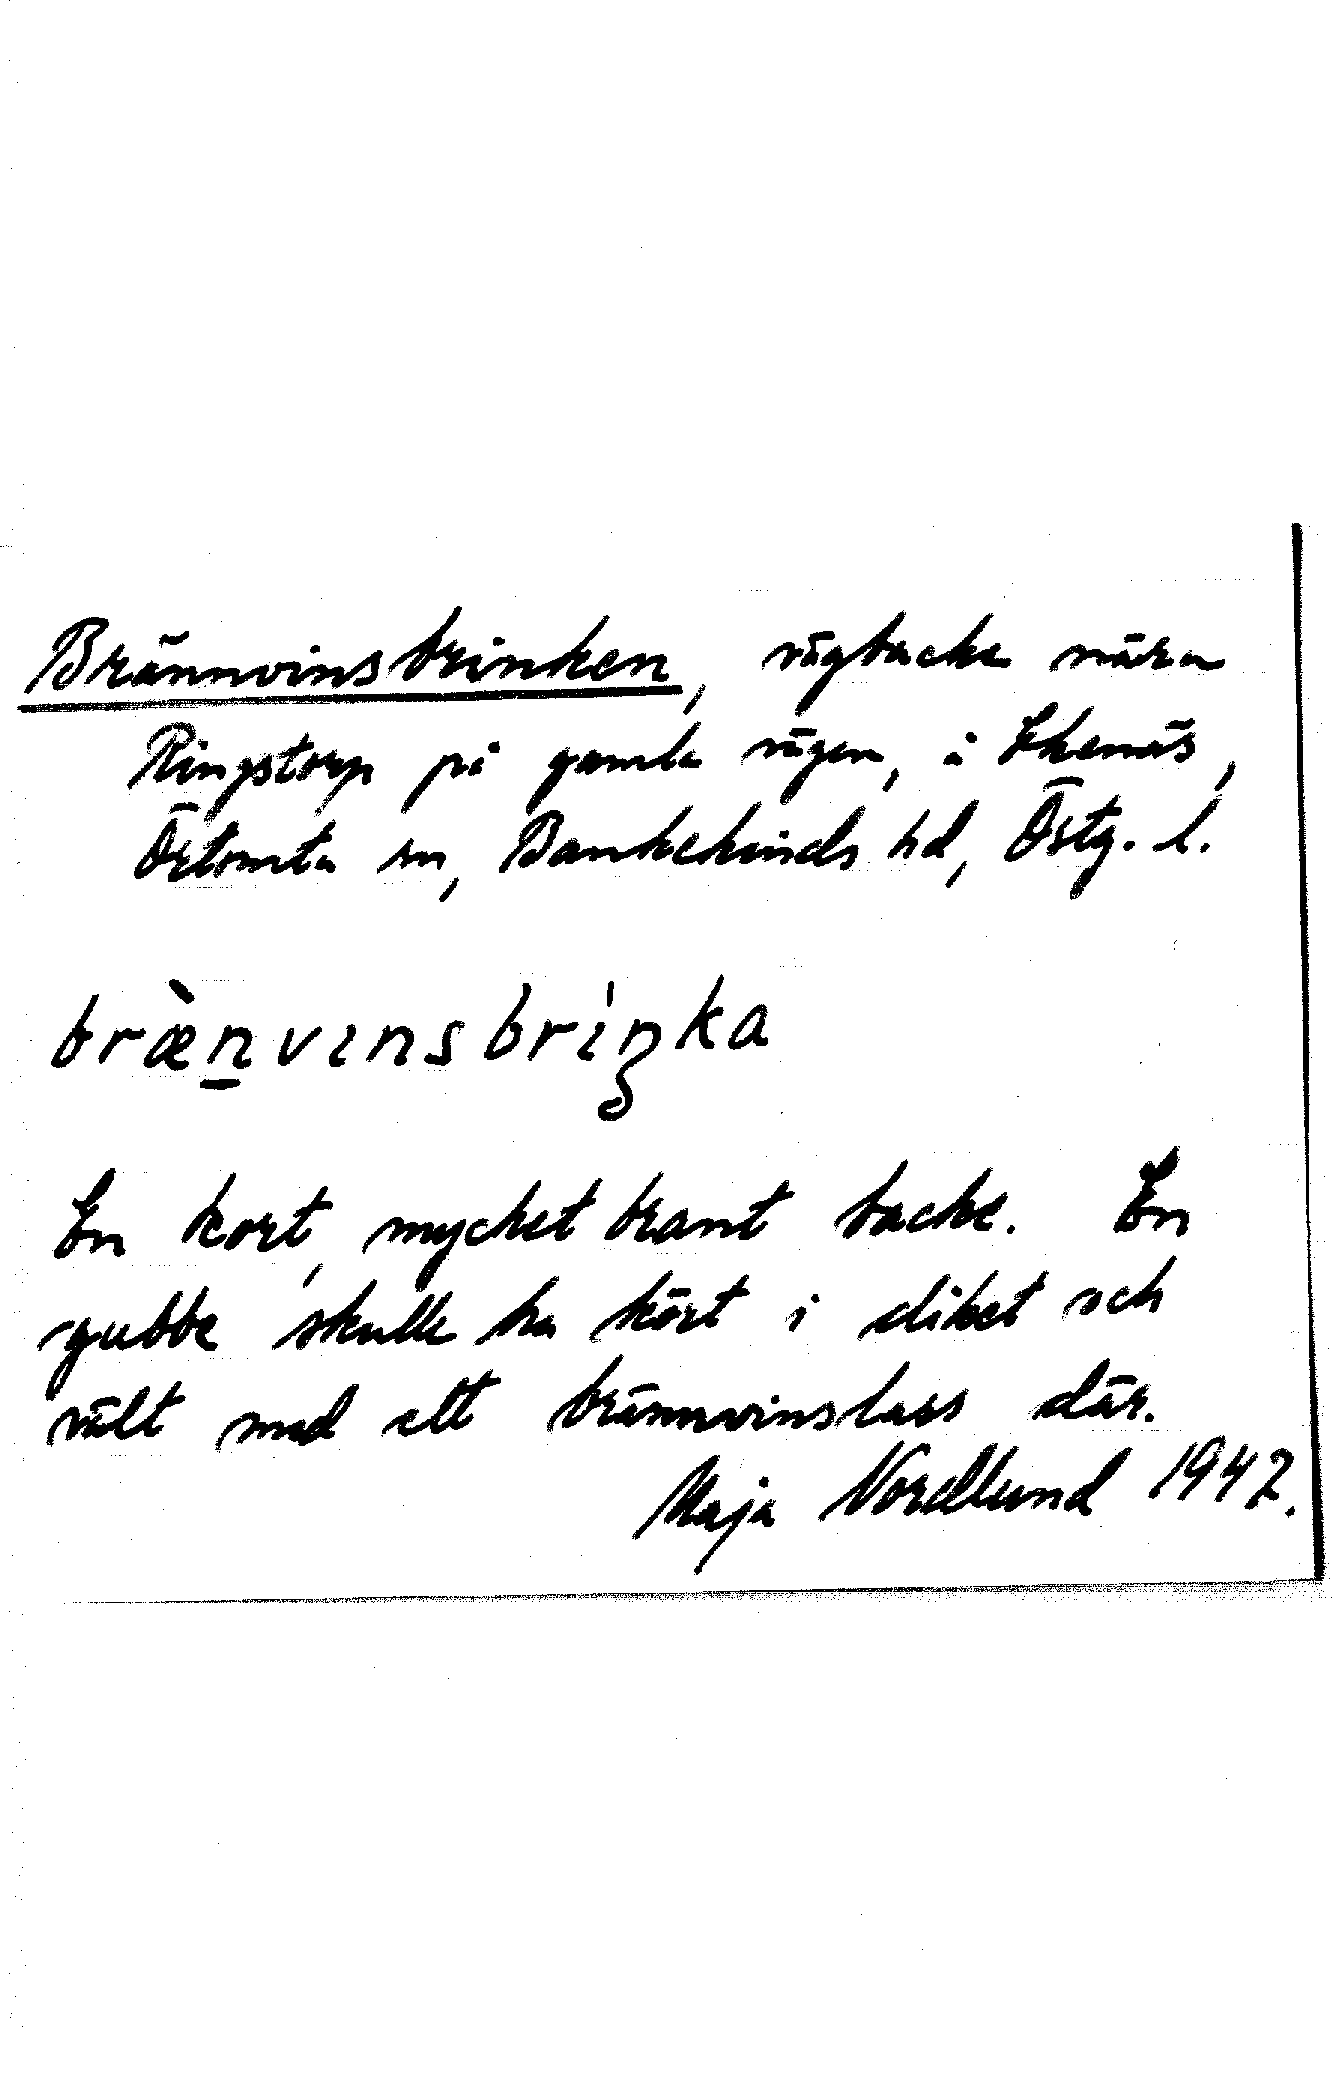 Brännvinsbrinken, vägbacke nära
Ringstorp på gamla vägen, å Ekenäs,
Örtomta sn, Bankekinds hd, Östg. l.
bræ̀n̲vınsbrìŋka
En kort, mycket brant backe. En
gubbe skulle ha kört i diket och
vält med ett brännvinslass där.
Maja Nordlund 1947.